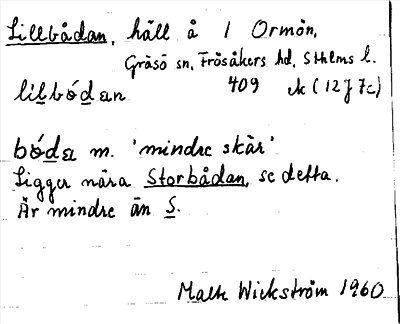 Lillbådan, häll å 1 Ormön,
Gräsö sn, Frösåkers hd, Sthlms l.
409 ek (12J 7c)
lilbódan
bóda m. 'mindre skär'.
Ligger nära Storbådan, se detta.
Är mindre än S.
Wickström 1960